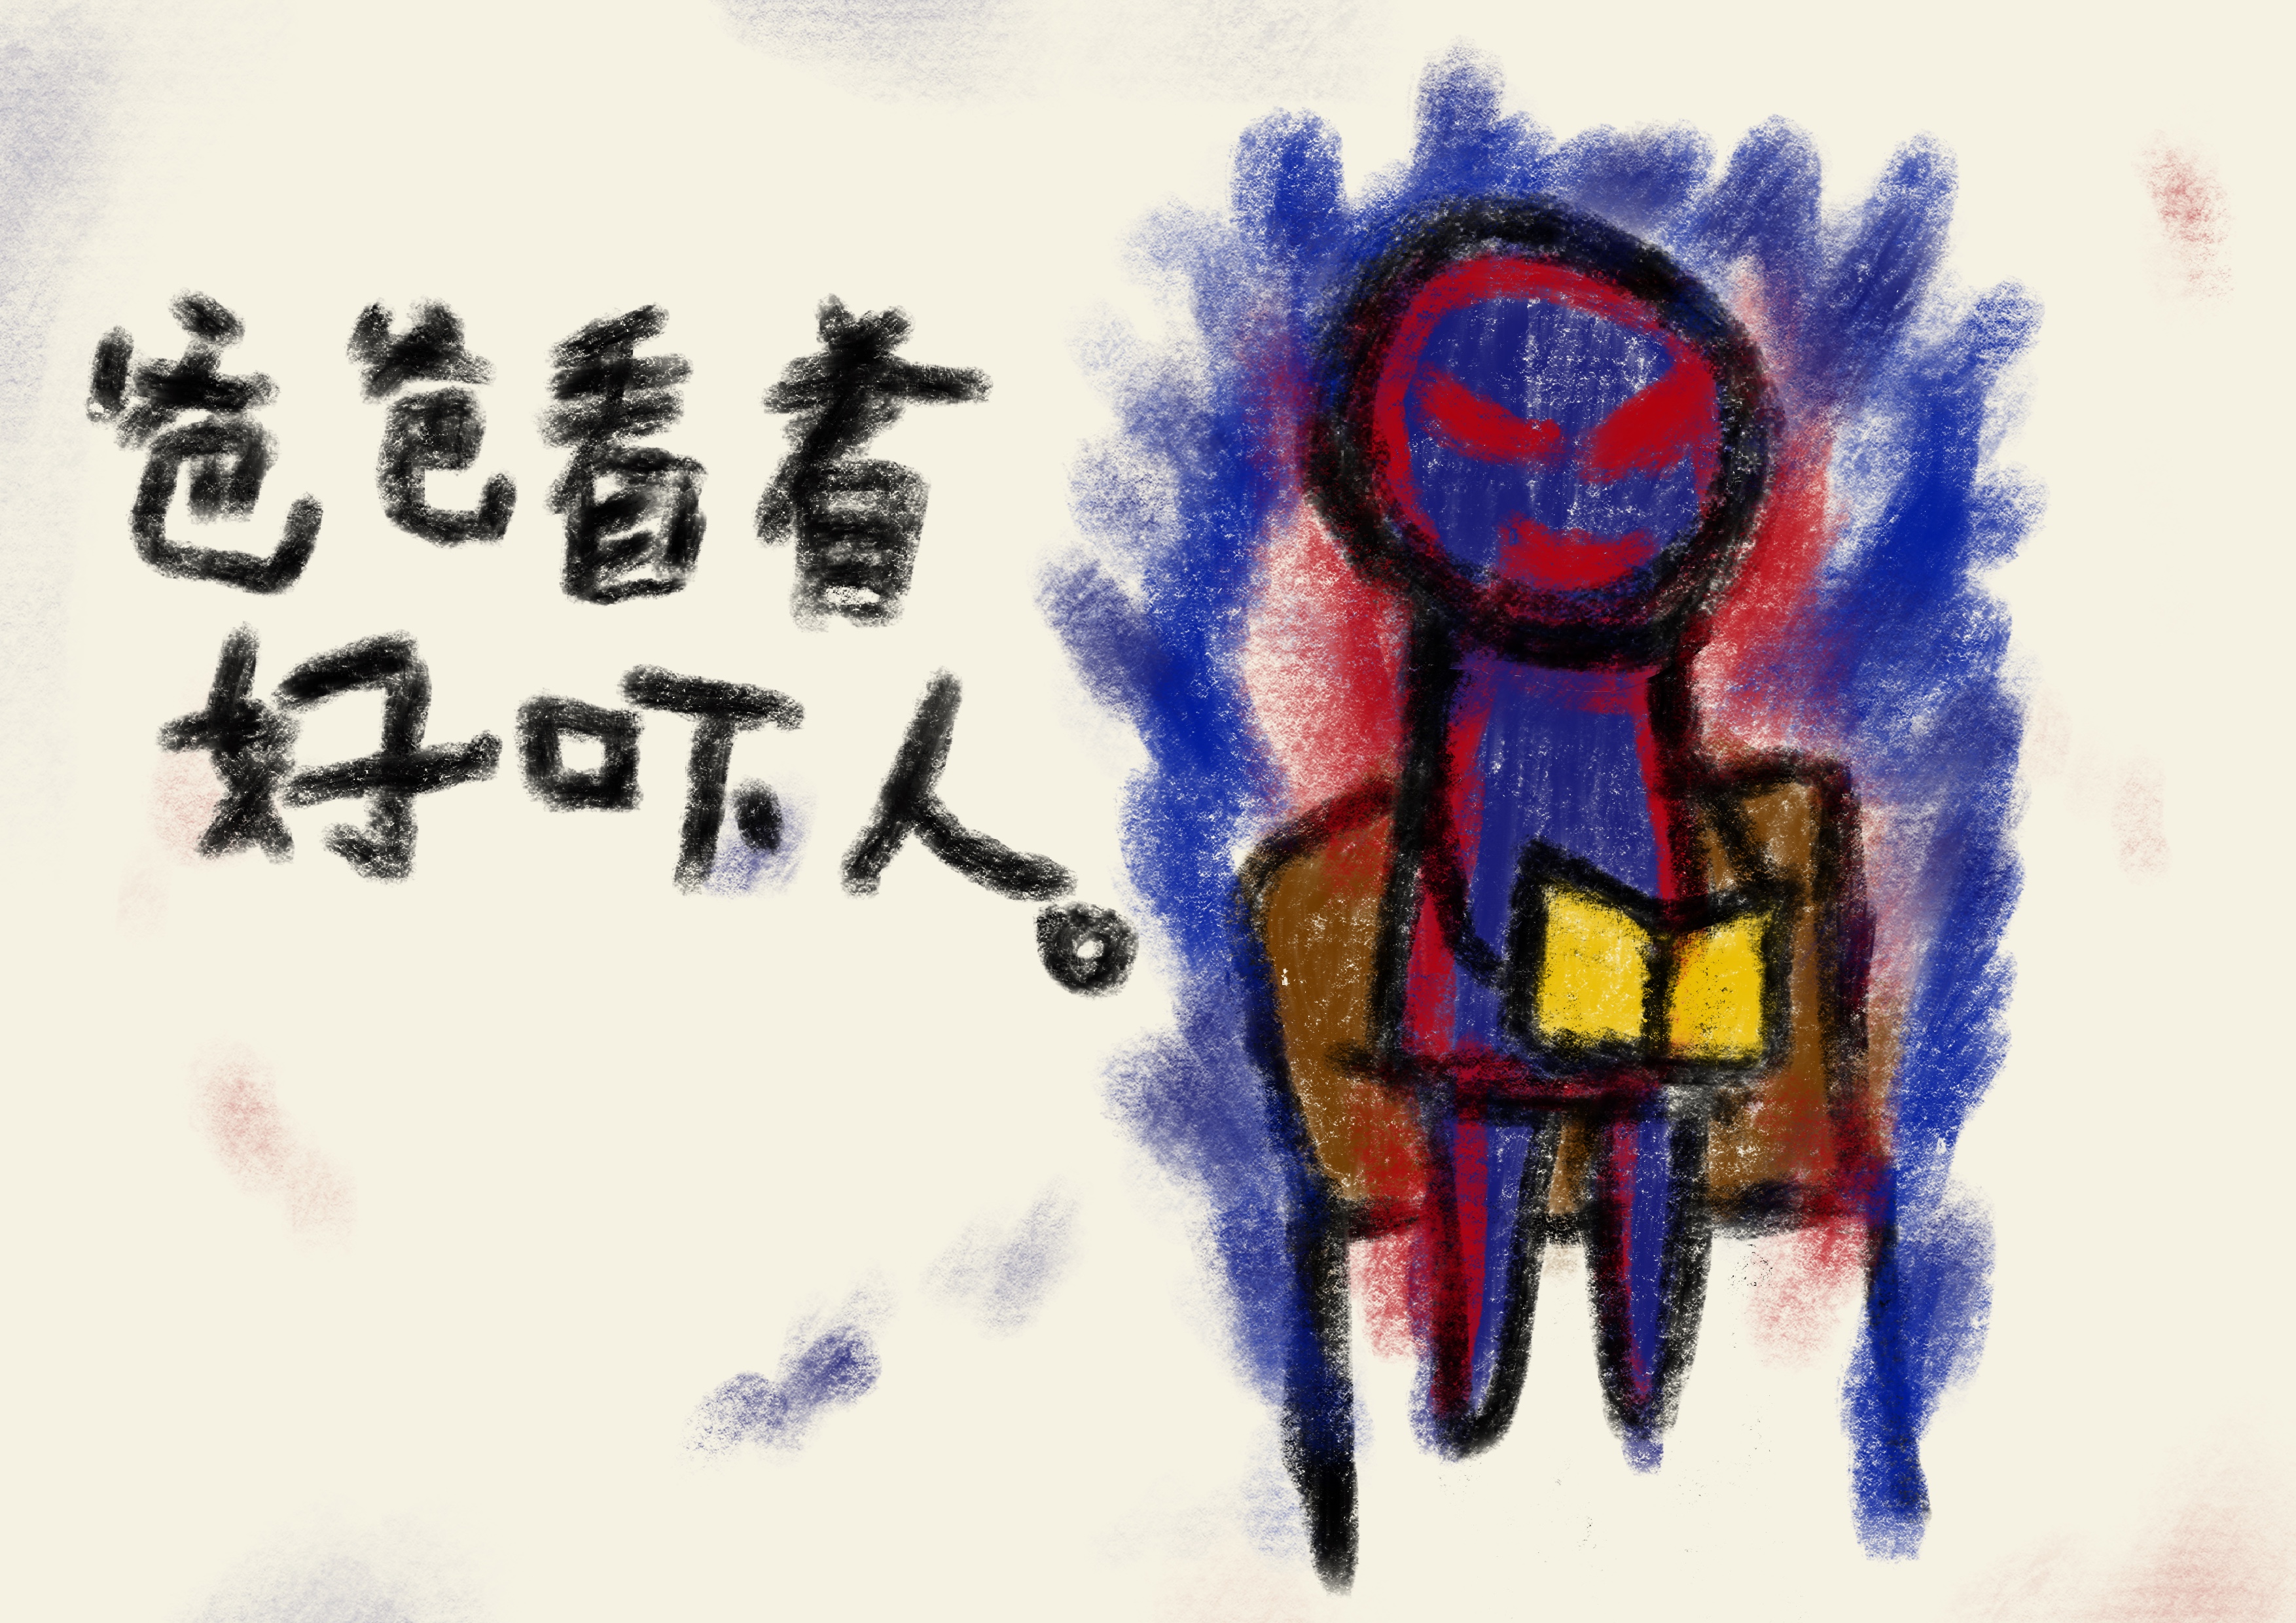 爸爸看着
好吓人。